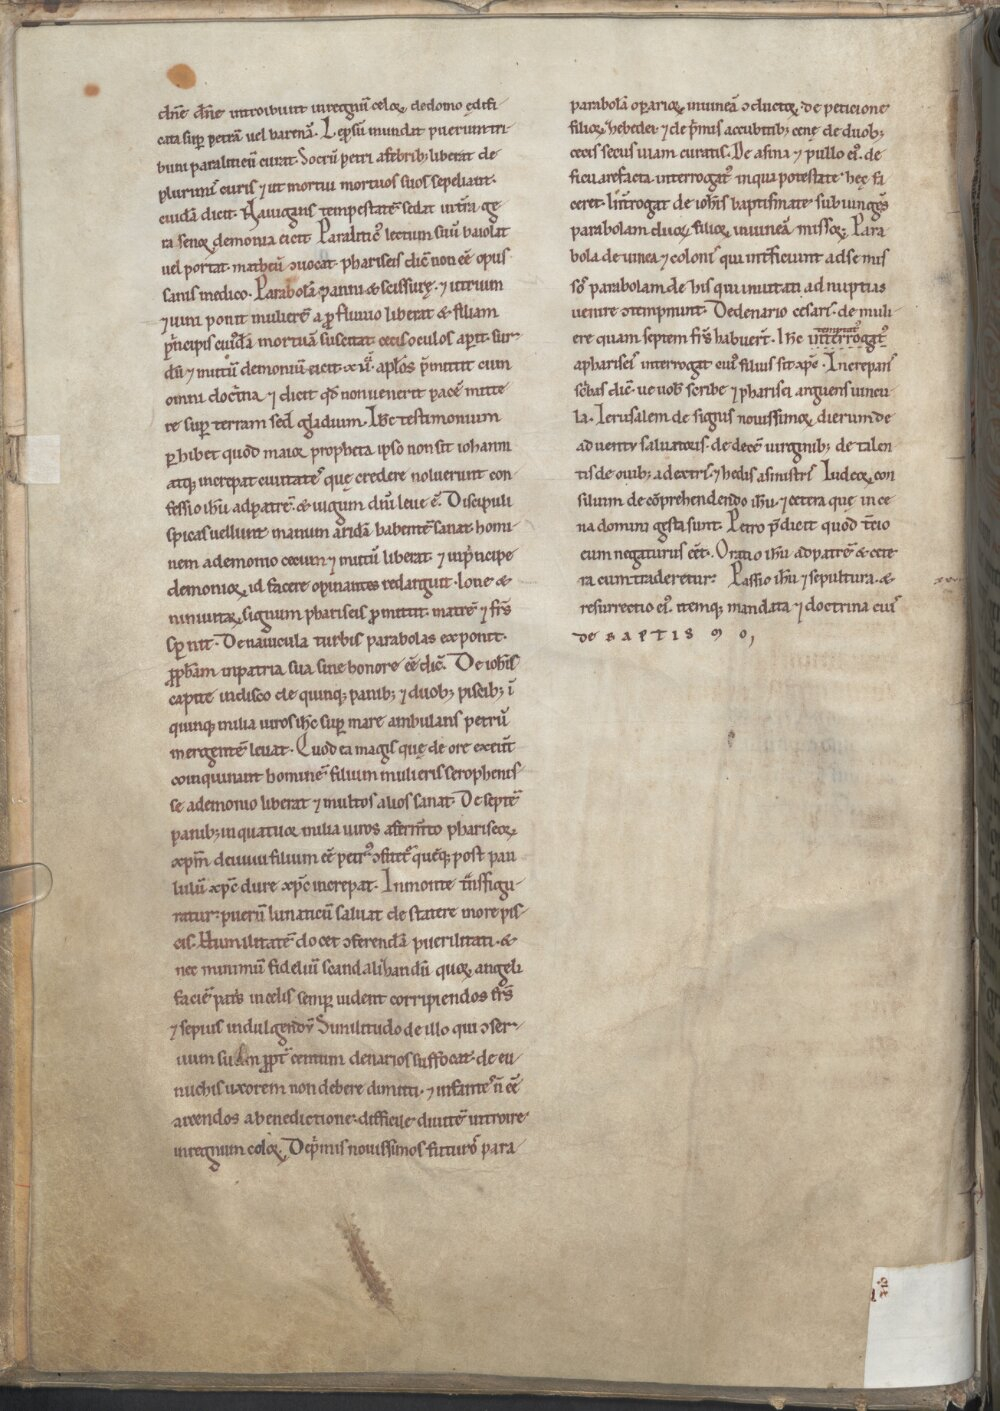 dn̄e dn̄e introibunt in regnū celoꝝ. de domo ędifi
cata suꝑ petrā vel harenā. Lep̱sū mundat puerum tri
buni paraliticū curat. Socrū petri a febrib; liberat de
plurimis curis ⁊ ut mortui mortuos suos sepeliant.
cuidā dicit. Nauigans tempestatē sedat ultra ge
ra senoꝝ demonia eicit Paraliticꝰ lectum suū baiolat
uel portat. matheū ꝯuocat phariseis dic̄ non eē opus
sanis medico. Parabolā panni & scissurę. ⁊ utrium
⁊ uini ponit mulierē a ꝓfluuio liberat & filiam
pͥncipis cuiꝰdā mortuā suscitat cecis oculos aperit. sur
dū ⁊ mutū demoniū eicit. & xii. apl̄os p̄mittit cum
omni doctͥna ⁊ dicit qd̄ non uenerit pacē mitte
re suꝑ terram sed gladium. Ihc̄ testimonium
ꝑhibet quod maior propheta ipso non sit iohanni
atq; increpat ciuitates quę credere noluerunt con
fessio ihū ad patrē. & iugum dn̄i leue ē. Discipuli
spicas uellunt manum aridā habentē sanat. homi
nem a demonio cecum ⁊ mutū liberat ⁊ in pͥncipe
demonioꝝ id facere opinantes redarguit. Ione &
niniuitaꝝ signum phariseis ꝓmittit. matrē ⁊ fr̄s
sꝑnit. De nauicula turbis parabolas exponit.
ꝓpham in patria sua sine honore eē dic̄. De ioh̄is
capite in disco de quinq; panib; ⁊ duob; piscib; ī
quinq; milia uiros ihc̄ suꝑ mare ambulans petrū
mergentē leuat. Quod ea magis quę de ore exeūt
coinquinant hominē filium mulieris serophenis
se a demonio liberat ⁊ multos alios sanat. De septē
panib; in quatuor milia uiros a fermto phariseoꝝ
xp̄m dei uiui filium eē petrꝰ ꝯfitetꝰ quēq; post pau
lulū xp̄c dure xp̄c increpat. In monte tͣnsfigu
ratur: puerū lunaticū saluat de statere in ore pis
cis. Humilitatē docet ꝯferendā puerilitati. &
nec minimū fideliū scandalizandū quoꝝ angeli
faciē patͥs in celis semꝑ uident corripiendos fr̄s
⁊ sepius indulgendū Similitudo de illo qui ꝯser
uum suum ꝓpt̄ centum denarios suffocat. de eu
nuchis uxorem non debere dimitti. ⁊ infantes n̄ eē
arcendos a benedictione. difficile diuitē introire
in regnum celoꝝ. De pͥmis nouissimos futuros para
parabolā oꝑarioꝝ in uineā ꝯductoꝝ de peticione
filioꝝ zebedei ⁊ de pͥmis accubitib; cenę de duob;
cecis secus uiam curatis. De asina ⁊ pullo eiꝰ. de
ficu arefacta. interrogatꝰ in qua potestate hęc fa
ceret. Int̄rogat de ioh̄is baptismate subiungēs
parabolam duoꝝ filioꝝ in uineā missoꝝ. Para
bola de uinea ⁊ colonis qui int̄ficiunt ad se mis
sos parabolam de his qui inuitati ad nuptias
uenire ꝯtempnunt. De denario cesaris. de muli
ere quam septem fr̄s habuert̄. Ihc̄ interrogatꝰ
temptatꝰ
a phariseis interrogat cuiꝰ filius sit xp̄c. Increpans
scͥbas dic̄. ue uob̄ scribe ⁊ pharisei arguens uincu
la. Ierusalem de signis nouissimoꝝ dierum de
aduentu saluatoris. de decē uirginib; de talen
tis de ouib; a dextris ⁊ hedis a sinistris Iudeoꝝ con
silium de cōprehendendo ihū. ⁊ cetera quę in ce
na domini gesta sunt. Petro p̄dicit quod t̄cio
eum negaturus eēt. Oratio ihū ad patrē & cete
ra cum traderetur. Passio ihū ⁊ sepultura. &
resurrectio eiꝰ. itemq; mandata ⁊ doctrina eiꝰ
DE BAPTISMO,